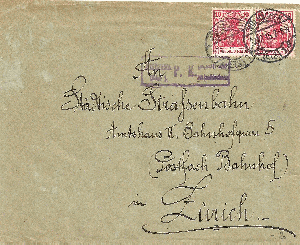 An
Städtische Strassenbahn
Amtshaus V. Bahnhofquai 5
(Postfach Bahnhof)
in
Zürich.